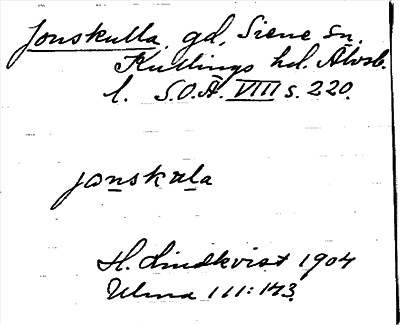 Jonskulla, gd, Siene sn.
Kullings hd. Älvsb.
l. S.O.Ä. VIII s. 220.
jonskula
H. Lindkvist 1904
Ulma 111:143.